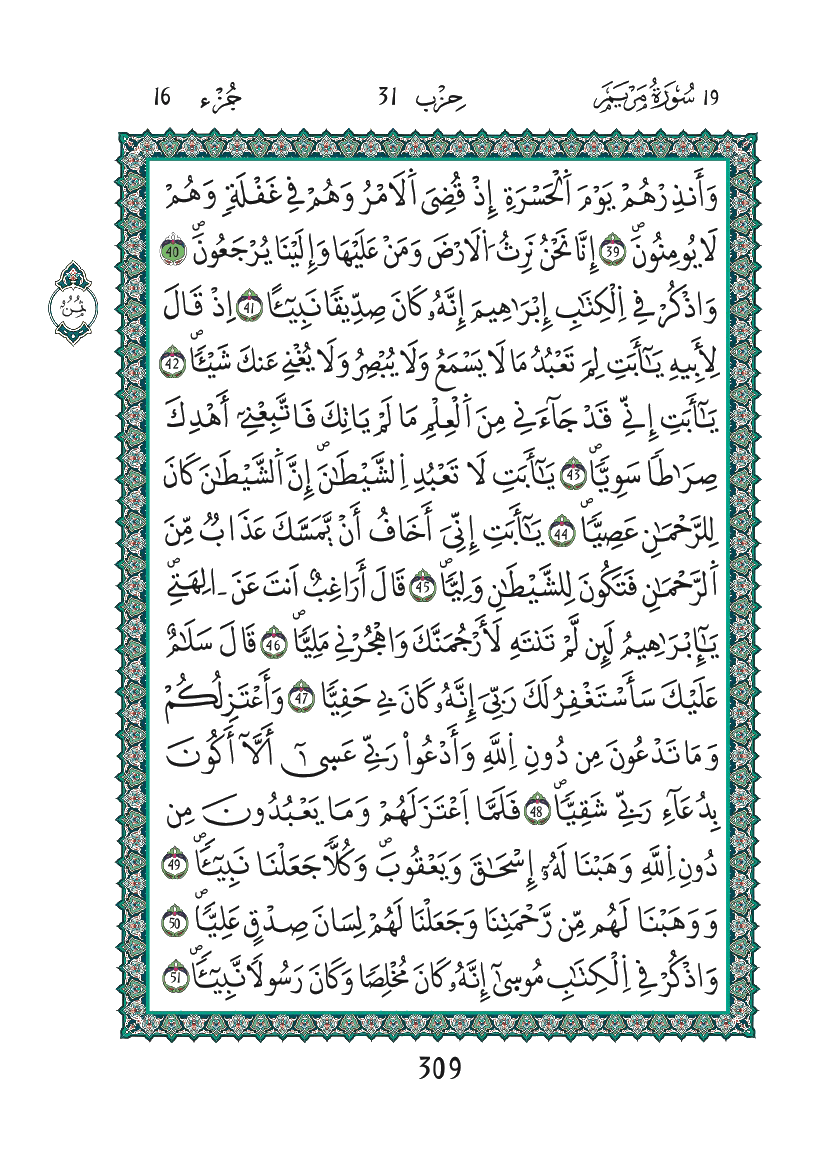 19 سُورَةُ مَرْيَمَ
حِزْب 31
جُزْء 16
وَأَنذِرْهُمْ يَوْمَ اَلْحَسْرَةِ إِذْ قُضِيَ اَلَامْرُ وَهُمْ فِي غَفْلَةٍ وَهُمْ
لَا يُومِنُونَۖ 39 إِنَّا نَحْنُ نَرِثُ اُلَارْضَ وَمَنْ عَلَيْهَا وَإِلَيْنَا يُرْجَعُونَۖ 40
وَاذْكُرْ فِي اِلْكِتَٰبِ إِبْرَٰهِيمَ إِنَّهُۥ كَانَ صِدِّيقًا نَبِيٓـًٔا 41 اِذْ قَالَ
لِأَبِيهِ يَٰٓأَبَتِ لِمَ تَعْبُدُ مَا لَا يَسْمَعُ وَلَا يُبْصِرُ وَلَا يُغْنِي عَنكَ شَيْـًٔاۖ 42
يَٰٓأَبَتِ إِنِّي قَدْ جَآءَنِي مِنَ اَلْعِلْمِ مَا لَمْ يَاتِكَ فَاتَّبِعْنِيٓ أَهْدِكَ
صِرَٰطًا سَوِيًّاۖ 43 يَٰٓأَبَتِ لَا تَعْبُدِ اِلشَّيْطَٰنَۖ إِنَّ اَلشَّيْطَٰنَ كَانَ
لِلرَّحْمَٰنِ عَصِيًّاۖ 44 يَٰٓأَبَتِ إِنِّيَ أَخَافُ أَنْ يَّمَسَّكَ عَذَابٌ مِّنَ
اَلرَّحْمَٰنِ فَتَكُونَ لِلشَّيْطَٰنِ وَلِيًّاۖ 45 قَالَ أَرَاغِبٌ اَنتَ عَنَ ـالِهَتِيۖ
يَٰٓإِبْرَٰهِيمُ لَئِن لَّمْ تَنتَهِ لَأَرْجُمَنَّكَ وَاهْجُرْنِي مَلِيًّاۖ 46 قَالَ سَلَٰمٌ
عَلَيْكَ سَأَسْتَغْفِرُ لَكَ رَبِّيَ إِنَّهُۥ كَانَ بِي حَفِيًّا 47 وَأَعْتَزِلُكُمْ
وَمَا تَدْعُونَ مِن دُونِ اِللَّهِ وَأَدْعُواْ رَبِّي عَسَىٰٓ أَلَّآ أَكُونَ
بِدُعَآءِ رَبِّي شَقِيًّاۖ 48 فَلَمَّا اَعْتَزَلَهُمْ وَمَا يَعْبُدُونَ مِن
دُونِ اِللَّهِ وَهَبْنَا لَهُۥٓ إِسْحَٰقَ وَيَعْقُوبَۖ وَكُلًّا جَعَلْنَا نَبِيٓـًٔاۖ 49
وَوَهَبْنَا لَهُم مِّن رَّحْمَتِنَا وَجَعَلْنَا لَهُمْ لِسَانَ صِدْقٍ عَلِيًّاۖ 50
وَاذْكُرْ فِي اِلْكِتَٰبِ مُوسَىٰٓ إِنَّهُۥ كَانَ مُخْلِصًا وَكَانَ رَسُولًا نَّبِيٓـًٔاۖ 51
ثُمُن
309